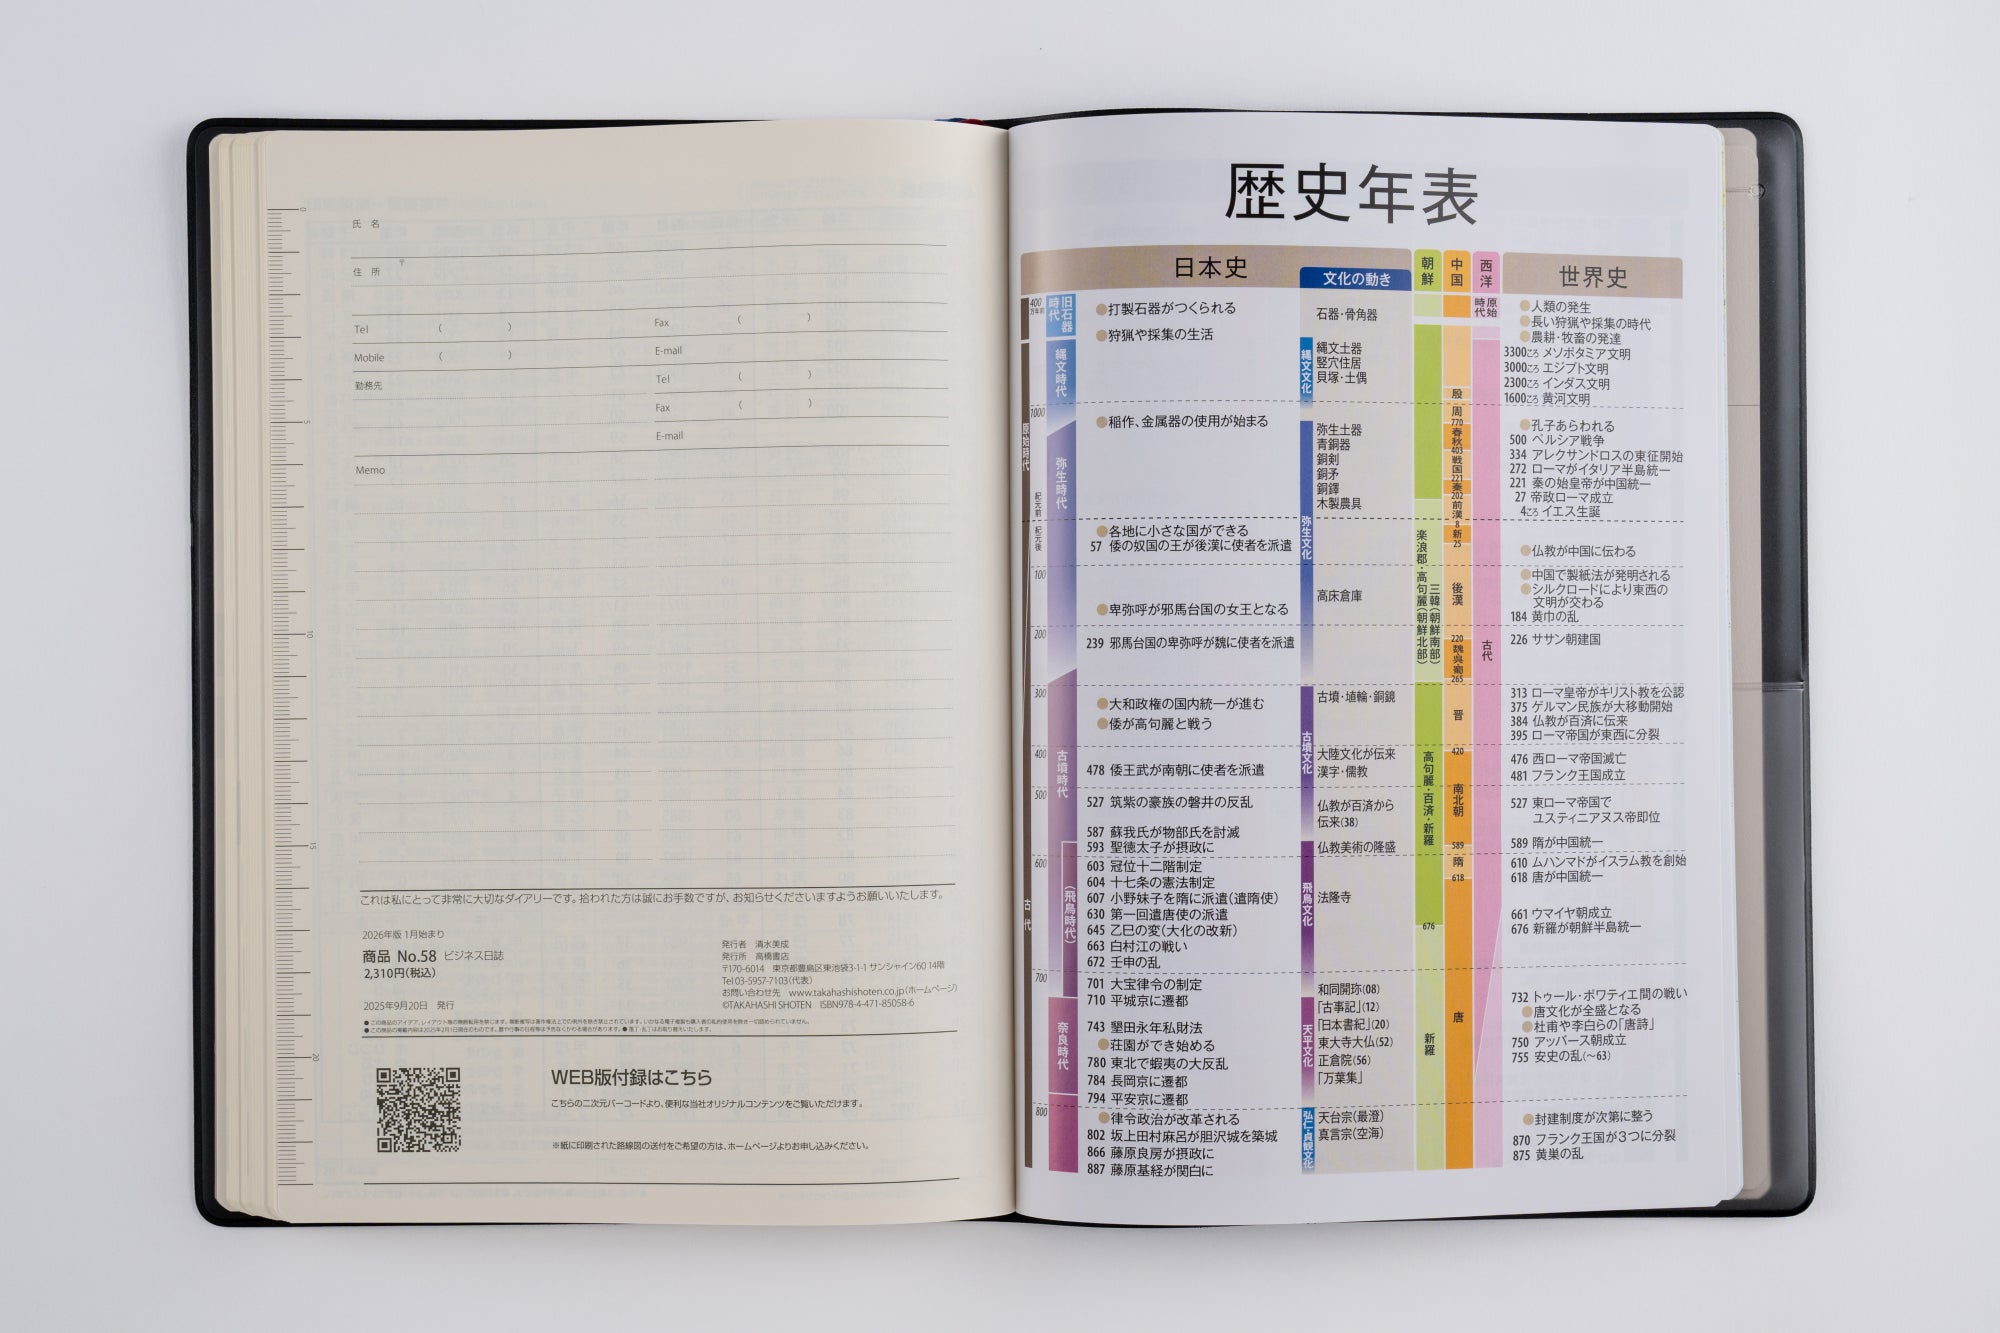 氏 名
住 所 〒
Tel ( ) Fax ( )
Mobile ( ) E-mail
勤務先 Tel ( )
Fax ( )
E-mail
Memo
これは私にとって非常に大切なダイアリーです。拾われた方は誠にお手数ですが、お知らせくださいますようお願いいたします。
2026年版 1月始まり
商品 No.58 ビジネス日誌
2,310円(税込)
2025年9月20日 発行
発行者 清水美成
発行所 高橋書店
〒170-6014 東京都豊島区東池袋3-1-1 サンシャイン60 14階
Tel 03-5957-7103(代表)
お問い合わせ先 www.takahashishoten.co.jp(ホームページ)
©TAKAHASHI SHOTEN ISBN978-4-471-85058-6
WEB版付録はこちら
こちらの二次元バーコードより、便利な当社オリジナルコンテンツをご覧いただけます。
※紙に印刷された路線図の送付をご希望の方は、ホームページよりお申し込みください。
0
5
10
15
20
歴史年表
日本史
文化の動き
朝鮮
中国
西洋
世界史
400万年前
1000
紀元前
紀元後
100
200
300
400
500
600
700
800
原始時代
古代
旧石器時代
縄文時代
弥生時代
古墳時代
(飛鳥時代)
奈良時代
●打製石器がつくられる
●狩猟や採集の生活
●稲作、金属器の使用が始まる
●各地に小さな国ができる
57 倭の奴国の王が後漢に使者を派遣
●卑弥呼が邪馬台国の女王となる
239 邪馬台国の卑弥呼が魏に使者を派遣
●大和政権の国内統一が進む
●倭が高句麗と戦う
478 倭王武が南朝に使者を派遣
527 筑紫の豪族の磐井の反乱
587 蘇我氏が物部氏を討滅
593 聖徳太子が摂政に
603 冠位十二階制定
604 十七条の憲法制定
607 小野妹子を隋に派遣(遣隋使)
630 第一回遣唐使の派遣
645 乙巳の変(大化の改新)
663 白村江の戦い
672 壬申の乱
701 大宝律令の制定
710 平城京に遷都
743 墾田永年私財法
●荘園ができ始める
780 東北で蝦夷の大反乱
784 長岡京に遷都
794 平安京に遷都
●律令政治が改革される
802 坂上田村麻呂が胆沢城を築城
866 藤原良房が摂政に
887 藤原基経が関白に
縄文文化
弥生文化
古墳文化
飛鳥文化
天平文化
弘仁・貞観文化
石器・骨角器
縄文土器
竪穴住居
貝塚・土偶
弥生土器
青銅器
銅剣
銅矛
銅鐸
木製農具
高床倉庫
古墳・埴輪・銅鏡
大陸文化が伝来
漢字・儒教
仏教が百済から
伝来(38)
仏教美術の隆盛
法隆寺
和同開珎(08)
「古事記」(12)
「日本書紀」(20)
東大寺大仏(52)
正倉院(56)
「万葉集」
天台宗(最澄)
真言宗(空海)
楽浪郡・高句麗(朝鮮北部)
三韓(朝鮮南部)
高句麗・百済・新羅
676
新羅
殷
周
770
春秋
403
戦国
221
秦
202
前漢
8
新
25
後漢
220
魏・呉・蜀
265
晋
420
南北朝
589
隋
618
唐
原始時代
古代
●人類の発生
●長い狩猟や採集の時代
●農耕・牧畜の発達
3300ころ メソポタミア文明
3000ころ エジプト文明
2300ころ インダス文明
1600ころ 黄河文明
●孔子あらわれる
500 ペルシア戦争
334 アレクサンドロスの東征開始
272 ローマがイタリア半島統一
221 秦の始皇帝が中国統一
27 帝政ローマ成立
4ころ イエス生誕
●仏教が中国に伝わる
●中国で製紙法が発明される
●シルクロードにより東西の
文明が交わる
184 黄巾の乱
226 ササン朝建国
313 ローマ皇帝がキリスト教を公認
375 ゲルマン民族が大移動開始
384 仏教が百済に伝来
395 ローマ帝国が東西に分裂
476 西ローマ帝国滅亡
481 フランク王国成立
527 東ローマ帝国で
ユスティニアヌス帝即位
589 隋が中国統一
610 ムハンマドがイスラム教を創始
618 唐が中国統一
661 ウマイヤ朝成立
676 新羅が朝鮮半島統一
732 トゥール・ポワティエ間の戦い
●唐文化が全盛となる
●杜甫や李白らの「唐詩」
750 アッバース朝成立
755 安史の乱(〜63)
●封建制度が次第に整う
870 フランク王国が3つに分裂
875 黄巣の乱